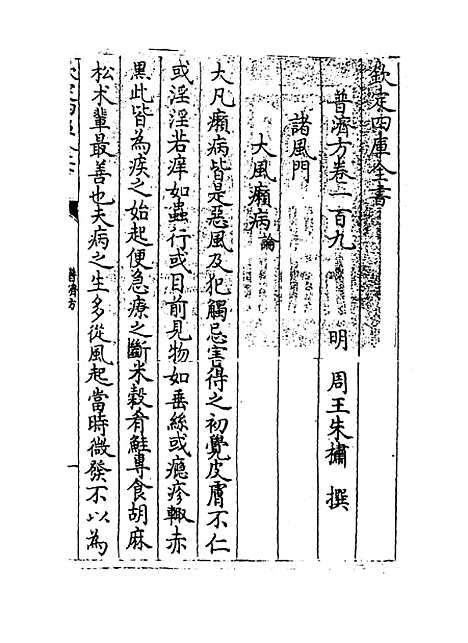 欽定四庫全書
普濟方卷一百九
明 周王朱橚 撰
諸風門
大風癩病論
大凡癩病皆是惡風及犯觸忌害得之初覺皮膚不仁
或淫淫若痒如蟲行或目前見物如垂絲或癮疹輙赤
黒此皆為疾之始起便急療之斷米穀肴鮭專食胡麻
松术輩最善也夫病之生多從風起當時微發不以為
欽定四庫全書
普濟方
一